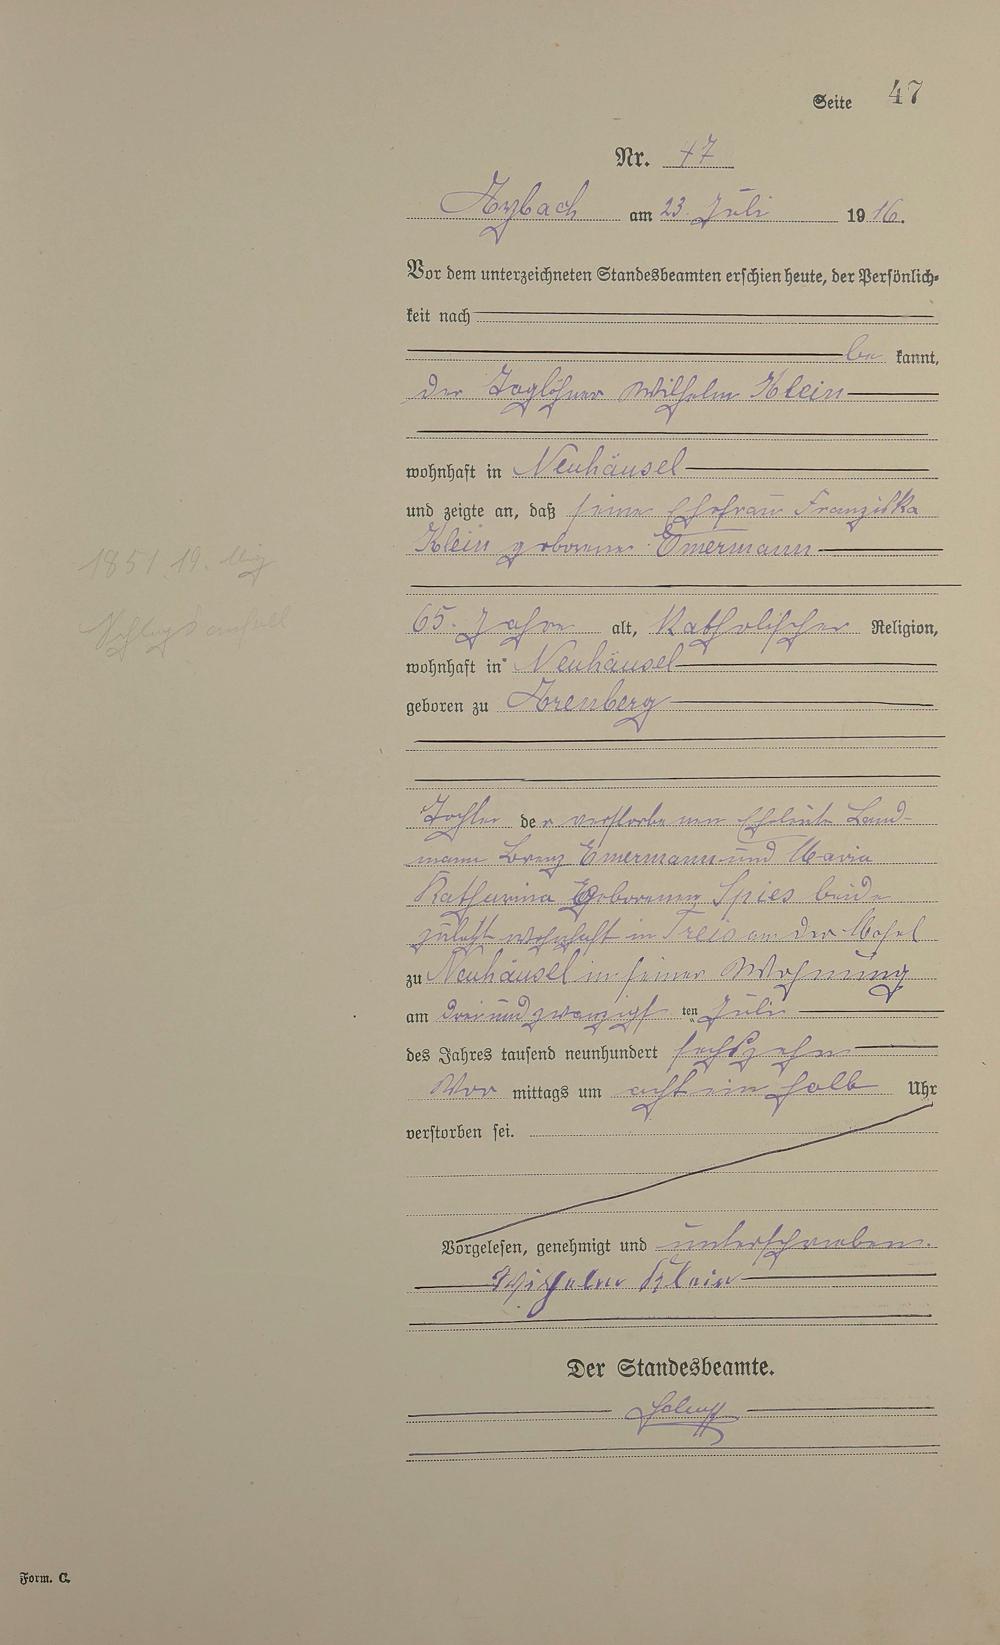 Seite 47
Nr. 47
Arzbach am 23. Juli 1916.
Vor dem unterzeichneten Standesbeamten erschien heute, der Persönlich-
keit nach
be kannt,
der Taglöhner Wilhelm Klein
wohnhaft in Neuhäusel
und zeigte an, daß seine Ehefrau Franziska
Klein geborene Emermann
1851 19.
65. Jahre alt, Katholischer Religion,
Schlaganfall
wohnhaft in Neuhäusel
geboren zu Arenberg
Tochter der verstorbenen Eheleute Land-
mann Lorenz Emermann und Maria
Katharina geborenen Spies beide
zuletzt wohnhaft in Treis an der Mosel
zu Neuhäusel in seiner Wohnung
am dreiundzwanzigst ten Juli
des Jahres tausend neunhundert sechszehn
Vor mittags um acht ein halb Uhr
verstorben sei.
Vorgelesen, genehmigt und unterschrieben.
Wilhelm Klein
Der Standesbeamte.
Form. C.